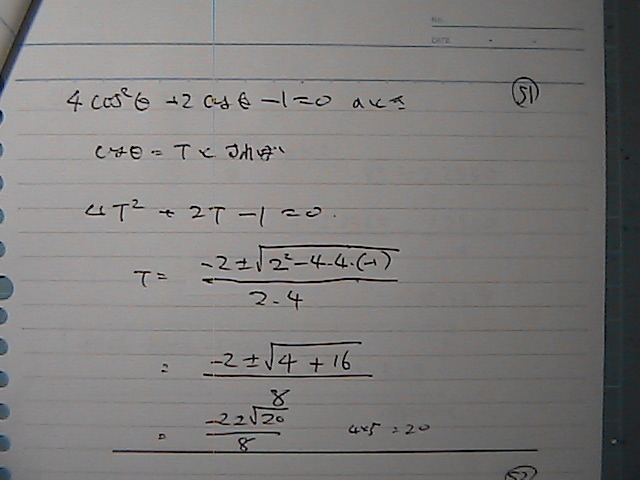 NO.
DATE
4cos²θ+2cosθ-1=0 のとき 51
cosθ=Tと
4T²+2T-1=0.
T= (-2±√(2²-4·4·(-1)))/(2·4)
= (-2±√(4+16))/8
= (-2±√20)/8 4×5=20
52